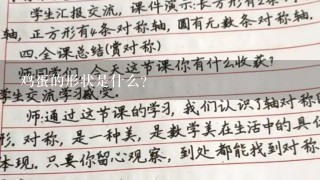 学生汇报交流,课件演示:长方形有2条
轴,正方形有4条对称轴,圆有无数条对称轴.
四.全课总结(赏对称)
今天这节课你有什么收获?
鸡蛋的形状是什么?
学生交流学习
师:通过这节课的学习,我们认识了轴对称
形.对称,是一种美,是数学美在生活中的具
体现.只要你留心观察,到处都能找到对称